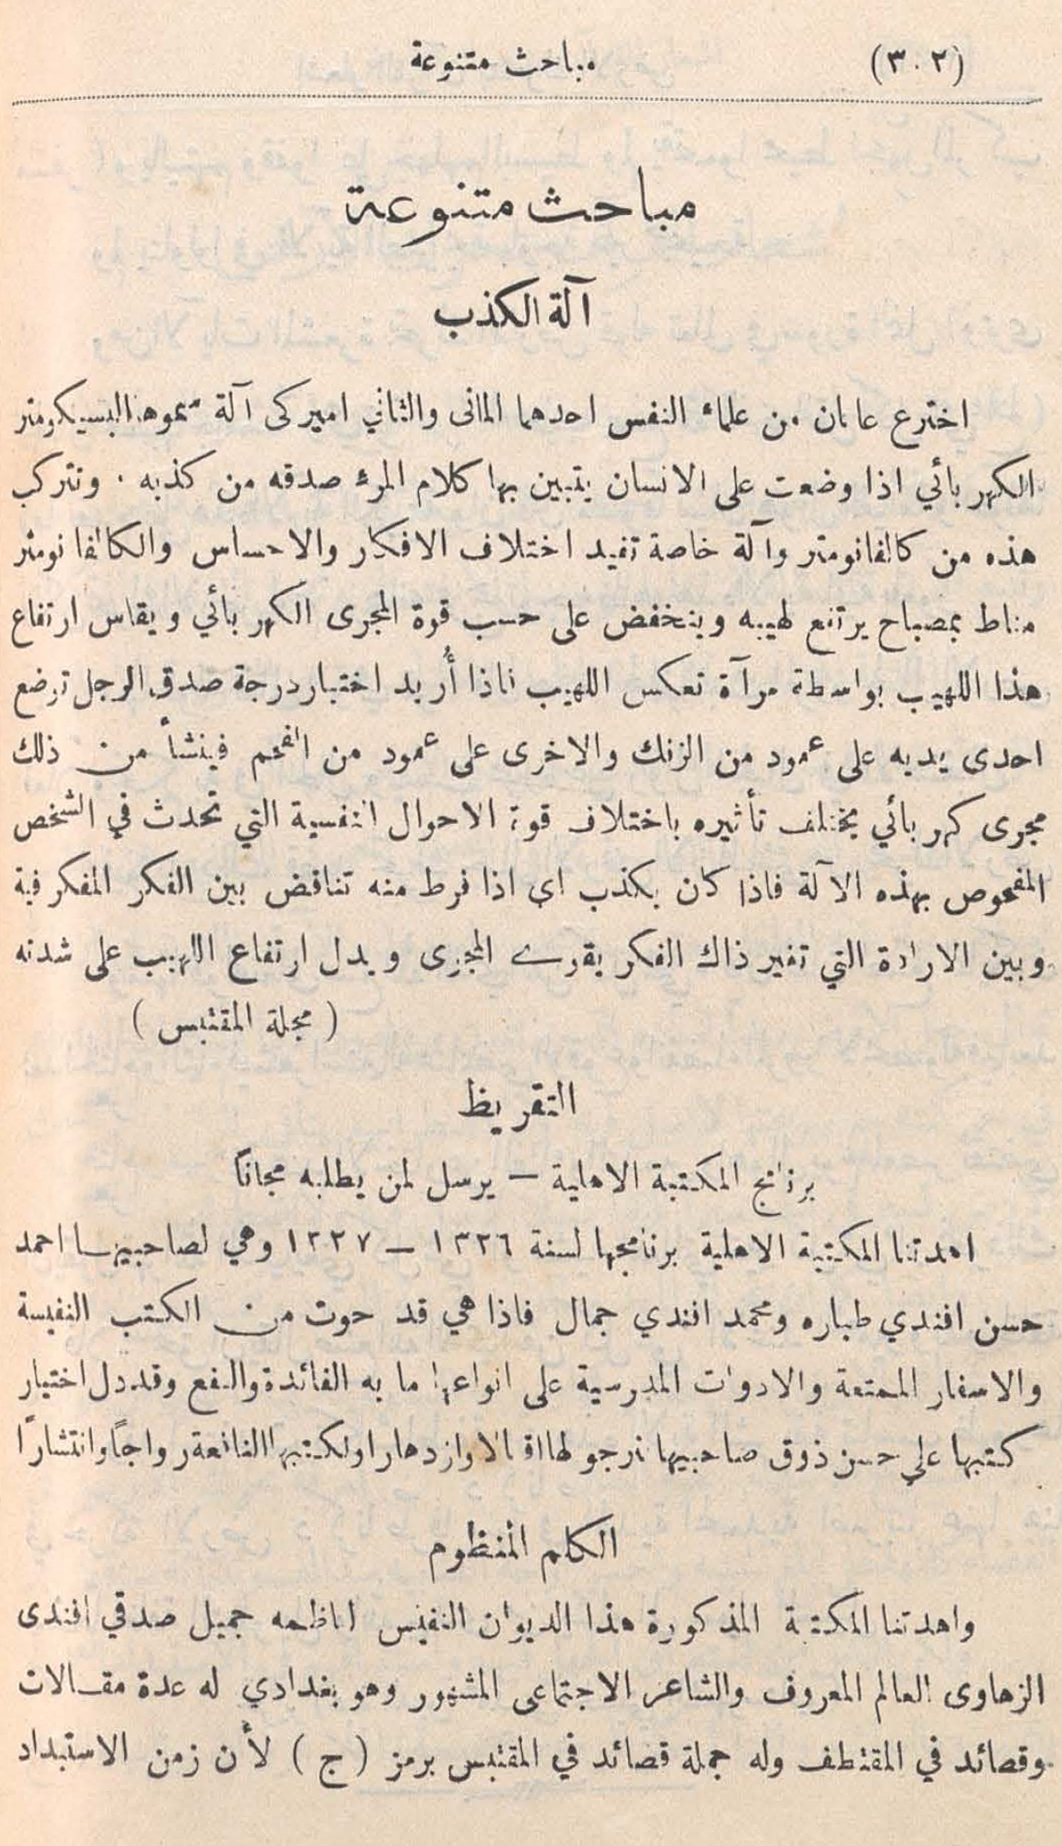 (٣٠٢) مباحث متنوعة
مباحث متنوعة
آلة الكذب
اخترع عالمان من علماء النفس احدهما المانى والثاني اميركى آلة سموها البسيكومتر
الكهربائي اذا وضعت على الانسان يتبين بها كلام المرء صدقه من كذبه . وتتركب
هذه من كالفانومتر وآلة خاصة تفيد اختلاف الافكار والاحساس والكالفانومتر
مناط بمصباح يرتفع لهيبه وينخفض على حسب قوة المجرى الكهربائي ويقاس ارتفاع
هذا اللهيب بواسطة مرآة تعكس اللهيب فاذا أُريد اختبار درجة صدق الرجل توضع
احدى يديه على عمود من الزنك والاخرى على عمود من الفحم فينشأ من ذلك
مجرى كهربائي يختلف تأثيره باختلاف قوة الاحوال النفسية التي تحدث في الشخص
المفحوص بهذه الآلة فاذا كان يكذب اى اذا فرط منه تناقض بين الفكر المفكر فية
وبين الارادة التي تغير ذاك الفكر يقوى المجرى ويدل ارتفاع اللهيب على شدته
( مجلة المقتبس )
التقريظ
برنامج المكتبة الاهلية – يرسل لمن يطلبه مجاناً
اهدتنا المكتبة الاهلية برنامجها لسنة ١٣٢٦ – ١٣٢٧ وهي لصاحبيها احمد
حسن افندي طباره ومحمد افندي جمال فاذا هي قد حوت من الكتب النفيسة
والاسفار الممتعة والادوات المدرسية على انواعها ما به الفائدة والنفع وقد دل اختيار
كتبها على حسن ذوق صاحبيها نرجو لها اقبالا وازدهارا ولكتبها النافعة رواجاً وانتشاراً
الكلم المنظوم
واهدتنا المكتبة المذكورة هذا الديوان النفيس لناظمه جميل صدقي افندى
الزهاوى العالم المعروف والشاعر الاجتماعى المشهور وهو بغدادي له عدة مقالات
وقصائد في المقتطف وله جملة قصائد في المقتبس برمز ( ج ) لأن زمن الاستبداد